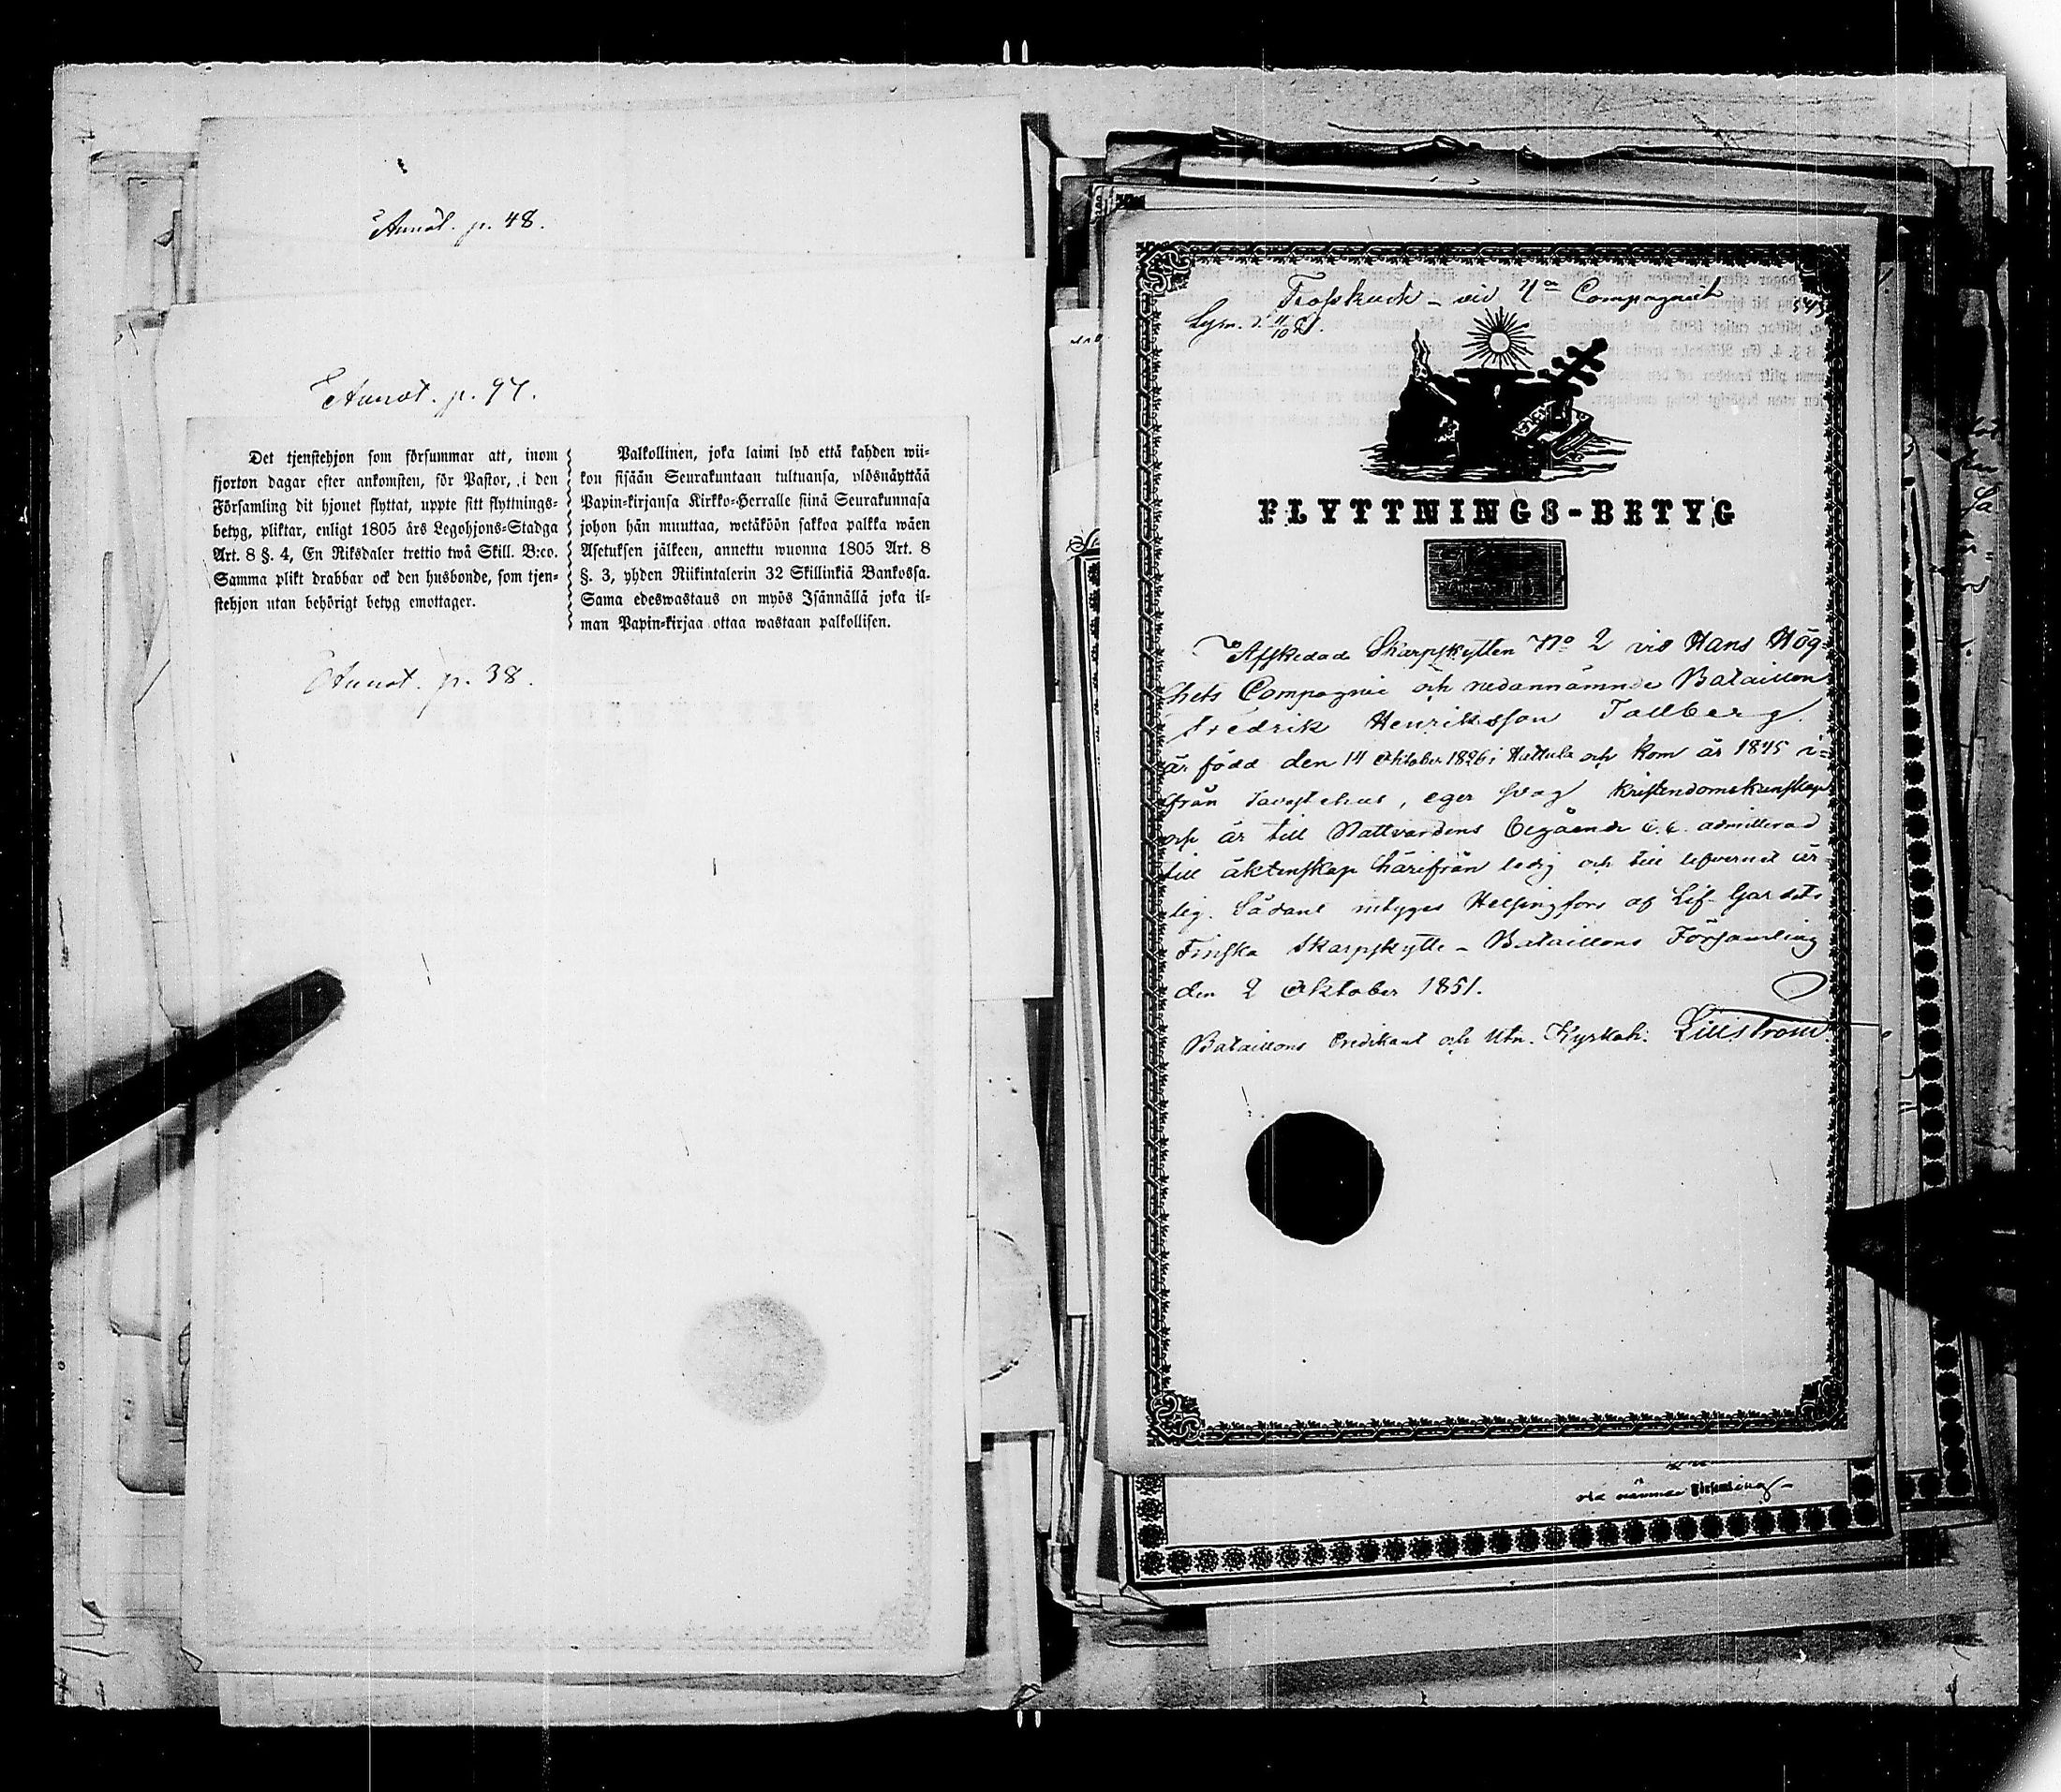 Annot. p. 48.
Annot. p. 97.
Det tjenstehjon som försummar att, inom
fjorton dagar efter ankomsten, för Pastor, i den
Församling dit hjonet flyttat, uppte sitt flyttnings-
betyg, pliktar, enligt 1805 års Legohjons-Stadga
Art. 8 §. 4, En Riksdaler trettio twå Skill. B:co.
Samma plikt drabbar ock den husbonde, som tjen-
stehjon utan behörigt betyg emottager.
Palkollinen, joka laimi lyö että kahden wii-
kon sisään Seurakuntaan tultuansa, ylösnäyttää
Papin-kirjansa Kirkko-Herralle siinä Seurakunnasa
johon hän muuttaa, wetäköön sakkoa palkka wäen
Asetuksen jälkeen, annettu wuonna 1805 Art. 8
§. 3, yhden Riikintalerin 32 Skillinkiä Bankossa.
Sama edeswastaus on myös Isännällä joka il-
man Papin-kirjaa ottaa wastaan palkollisen.
Annot. p. 38.
Trosskusk - vid 4de Compagniet
FLYTTNINGS-BETYG
Afskedade Skarpskytten No 2 vid Hans Hög-
hets Compagnie och nedannämnde Bataillon
Fredrik Henriksson Tallberg
är född den 14 Oktober 1826 i Hattula och kom år 1845 i-
från Tavastehus, eger svag kristendomskunskap
och är till Nattvardens begående admitterad
till äktenskap härifrån ledig och till lefvernet är-
lig. Sådant intygas Helsingfors af Lif-Gardets
Finska Skarpskytte-Bataillons Församling
den 2 Oktober 1851.
Bataillons Predikant och Utn. Kyrkoh. Lillström
vid nämnde Församling